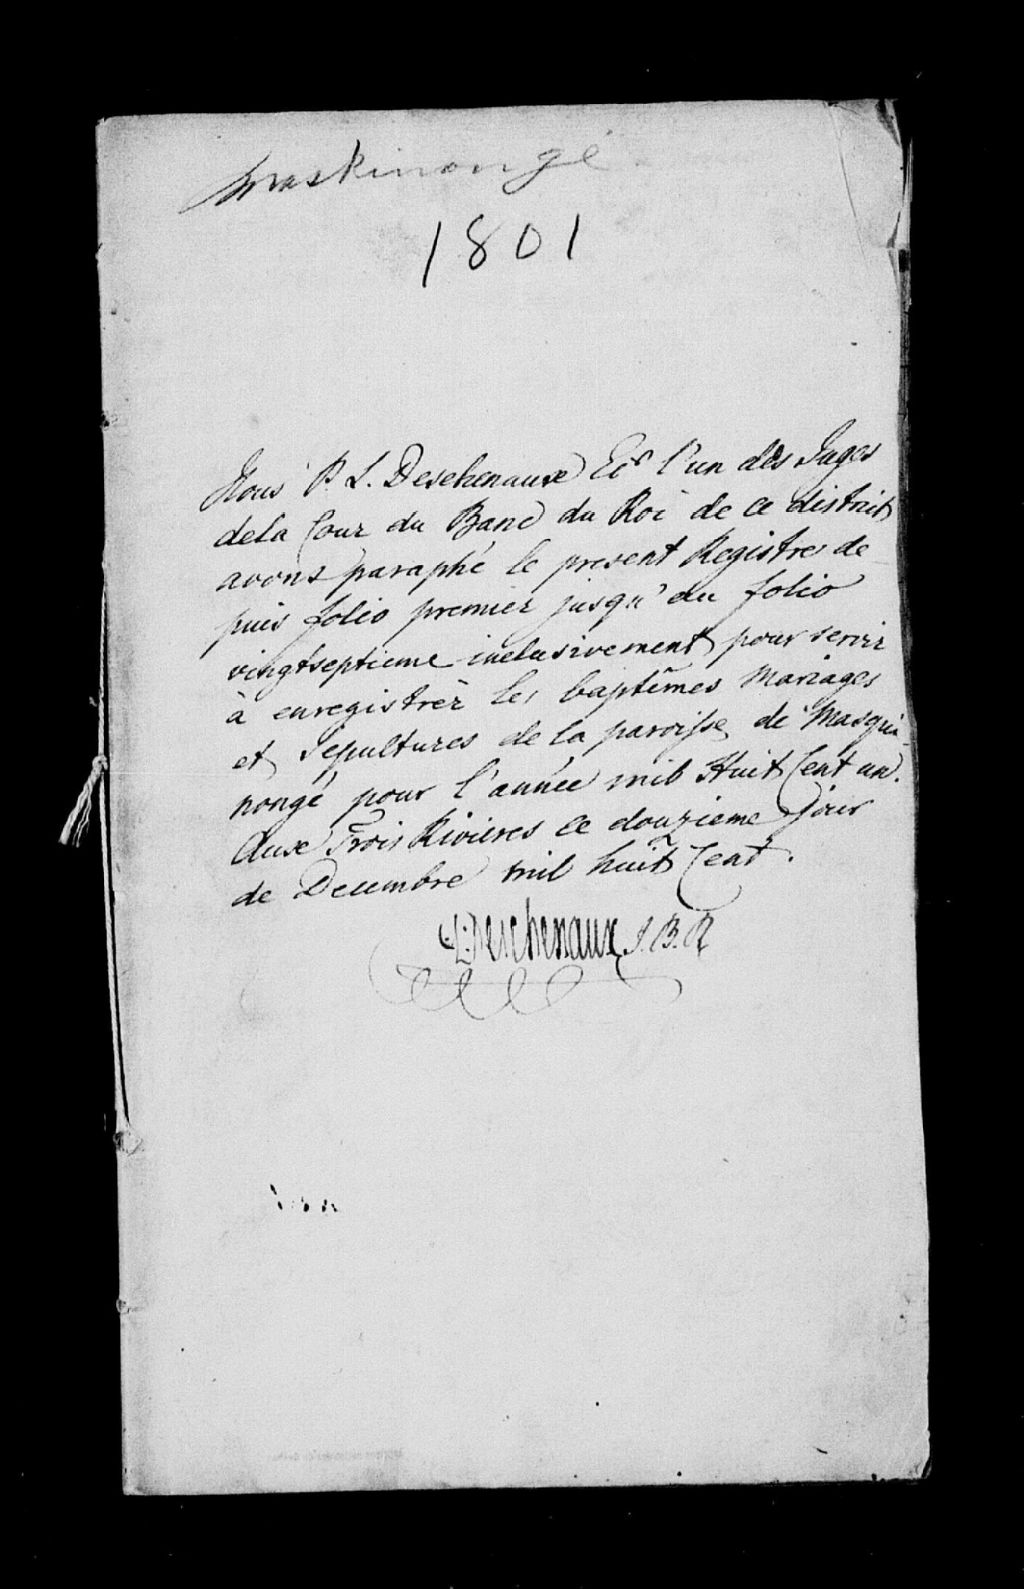 Maskinongé
1801
Nous P. L. Deschenaux Ecr l'un des Juges
dela Cour du Banc du Roi de ce district
avons paraphé le present Registre de
puis folio premier jusqu'au folio
vingtseptieme inclusivement pour servir
à enregistrèr les baptêmes Mariages
et Sepultures de la paroisse de Masqui-
nongé pour l'année mil Huit Cent un.
Aux Trois Rivieres ce douzieme Jour
de Decembre mil huit Cent.
P. L. Deschenaux J. B. R